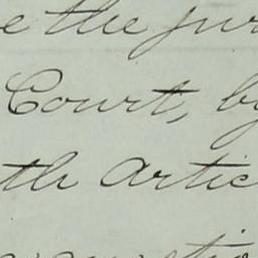 e the jur
Court, by
th Artic